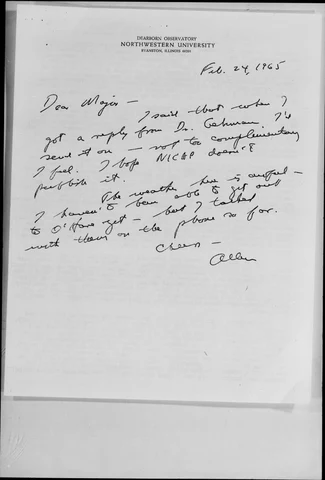 DEARBORN OBSERVATORY
NORTHWESTERN UNIVERSITY
EVANSTON, ILLINOIS 60201
Feb. 24, 1965
Dear Major —
I said that when I
got a reply from Dr. I'd
send it on — not too complimentary
I feel. I hope NICAP doesn't
publish it.
The weather here is awful —
I haven't been able to get out
to O'Hare yet — but I talked
with them on the phone so far.
Cheers —
Allen